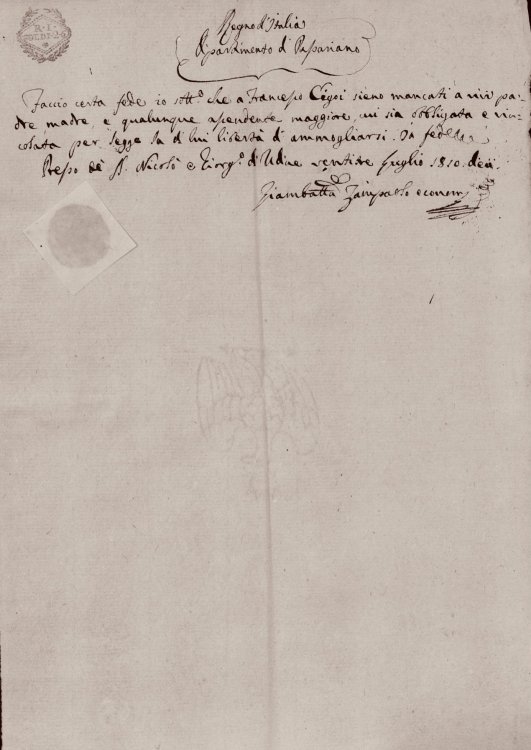 Regno d'Italia
Dipartimento di Passariano
Faccio certa fede io sott.º che a Francesco Cigoi sieno mancati a vivi pa-
dre madre, e qualunque ascendente maggiore, cui sia obbligata e vin-
colata per legge la di lui libertà di ammogliarsi. In fede
Presso S. Nicolò di Udine ventitre Luglio 1810. dieci.
Giambatta Zampar economo